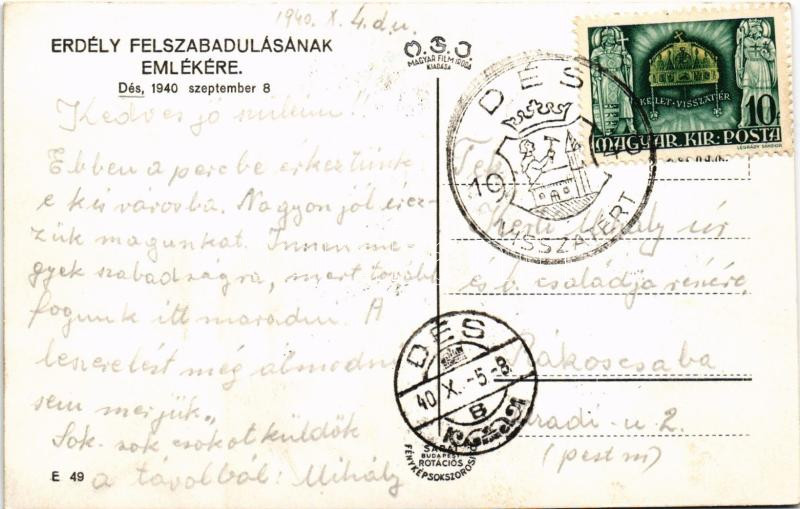 1940. X. 4. d.u.
ERDÉLY FELSZABADULÁSÁNAK
EMLÉKÉRE.
Dés, 1940 szeptember 8
Kedves jó
Ebben a percbe érkeztünk
e kis városba. Nagyon jól érez-
zük magunkat. Innen me-
gyek szabadságra, mert tovább
fogunk itt maradni. A
leszerelést még álmodni
sem merjük.
Sok sok csókot küldök
a távolból: Mihály
E 49
O.G.J
MAGYAR FILM IRODA
KIADÁSA
BUDAPEST
ROTÁCIÓS
FÉNYKÉPSOKSZOROSÍ
DÉS
19
VISSZATÉRT
KELET VISSZATÉR
10
MAGYAR·KIR·POSTA
LÉGRÁDY SÁNDOR
DÉS
40 X.-5.-8
B
Mihály úr
és b. családja részére
Rákoscsaba
u. 2.
(pest m)